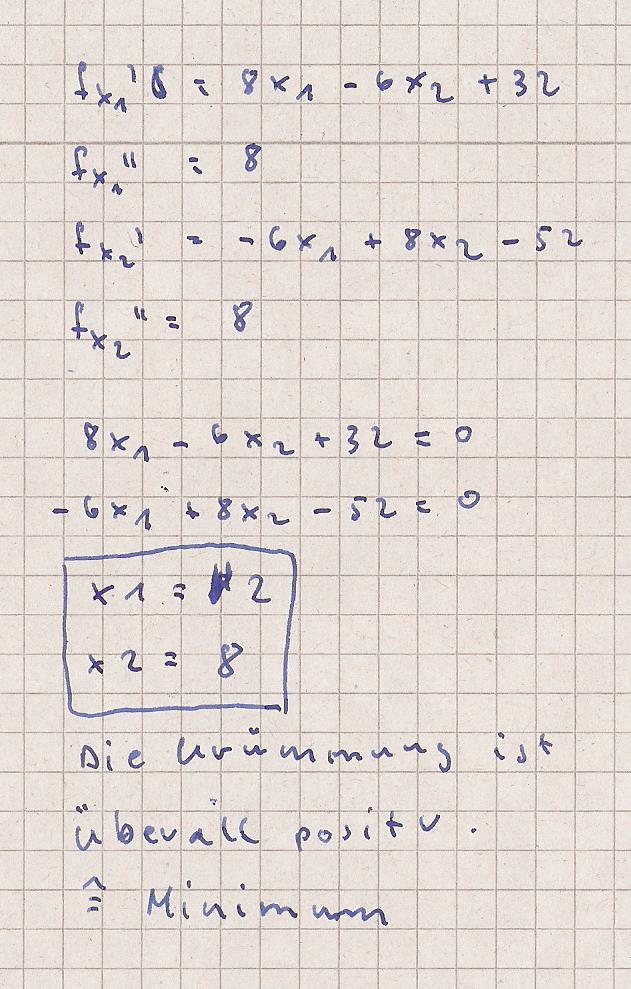 fx₁' = 8x₁ - 6x₂ + 32
fx₁'' = 8
fx₂' = -6x₁ + 8x₂ - 52
fx₂'' = 8
8x₁ - 6x₂ + 32 = 0
-6x₁ + 8x₂ - 52 = 0
x1 = 2
x2 = 8
Die Krümmung ist
überall positv.
≙ Minimum